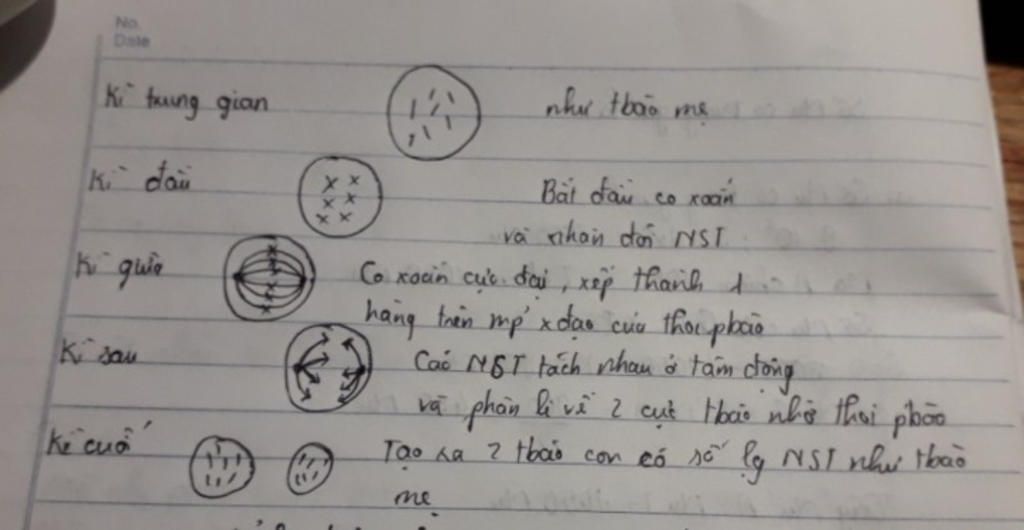 No.
Date
Kì trung gian như tbào mẹ
Kì đầu Bắt đầu co xoắn
và nhân đôi NST
Kì giữa Co xoắn cực đại, xếp thành 1
hàng trên mp' xđạo của thoi pbào
Kì sau Các NST tách nhau ở tâm động
và phân li về 2 cực tbào nhờ thoi pbào
Kì cuối Tạo ra 2 tbào con có số lg NST như tbào
mẹ